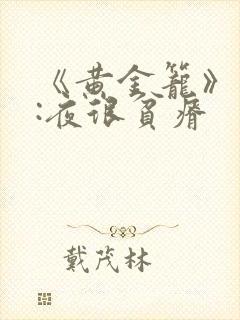 《黄金籠》
:夜很貧瘠
戴茂林